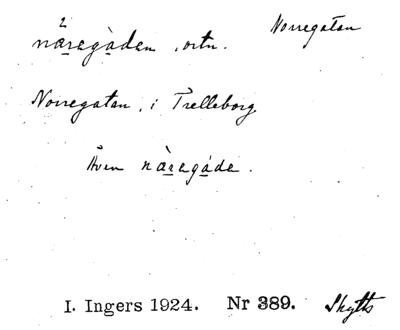 Norregatan
nåregàden, ortn.
Norregatan, i Trelleborg
Även nàregáde.
I. Ingers 1924. Nr 389. Skytts